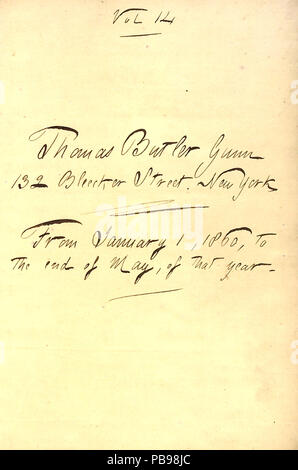 Vol 14
Thomas Butler Gunn
132 Bleecker Street. New York
From January 1, 1860, to
the end of May, of that year.
alamy
Image ID: PB98JC
www.alamy.com